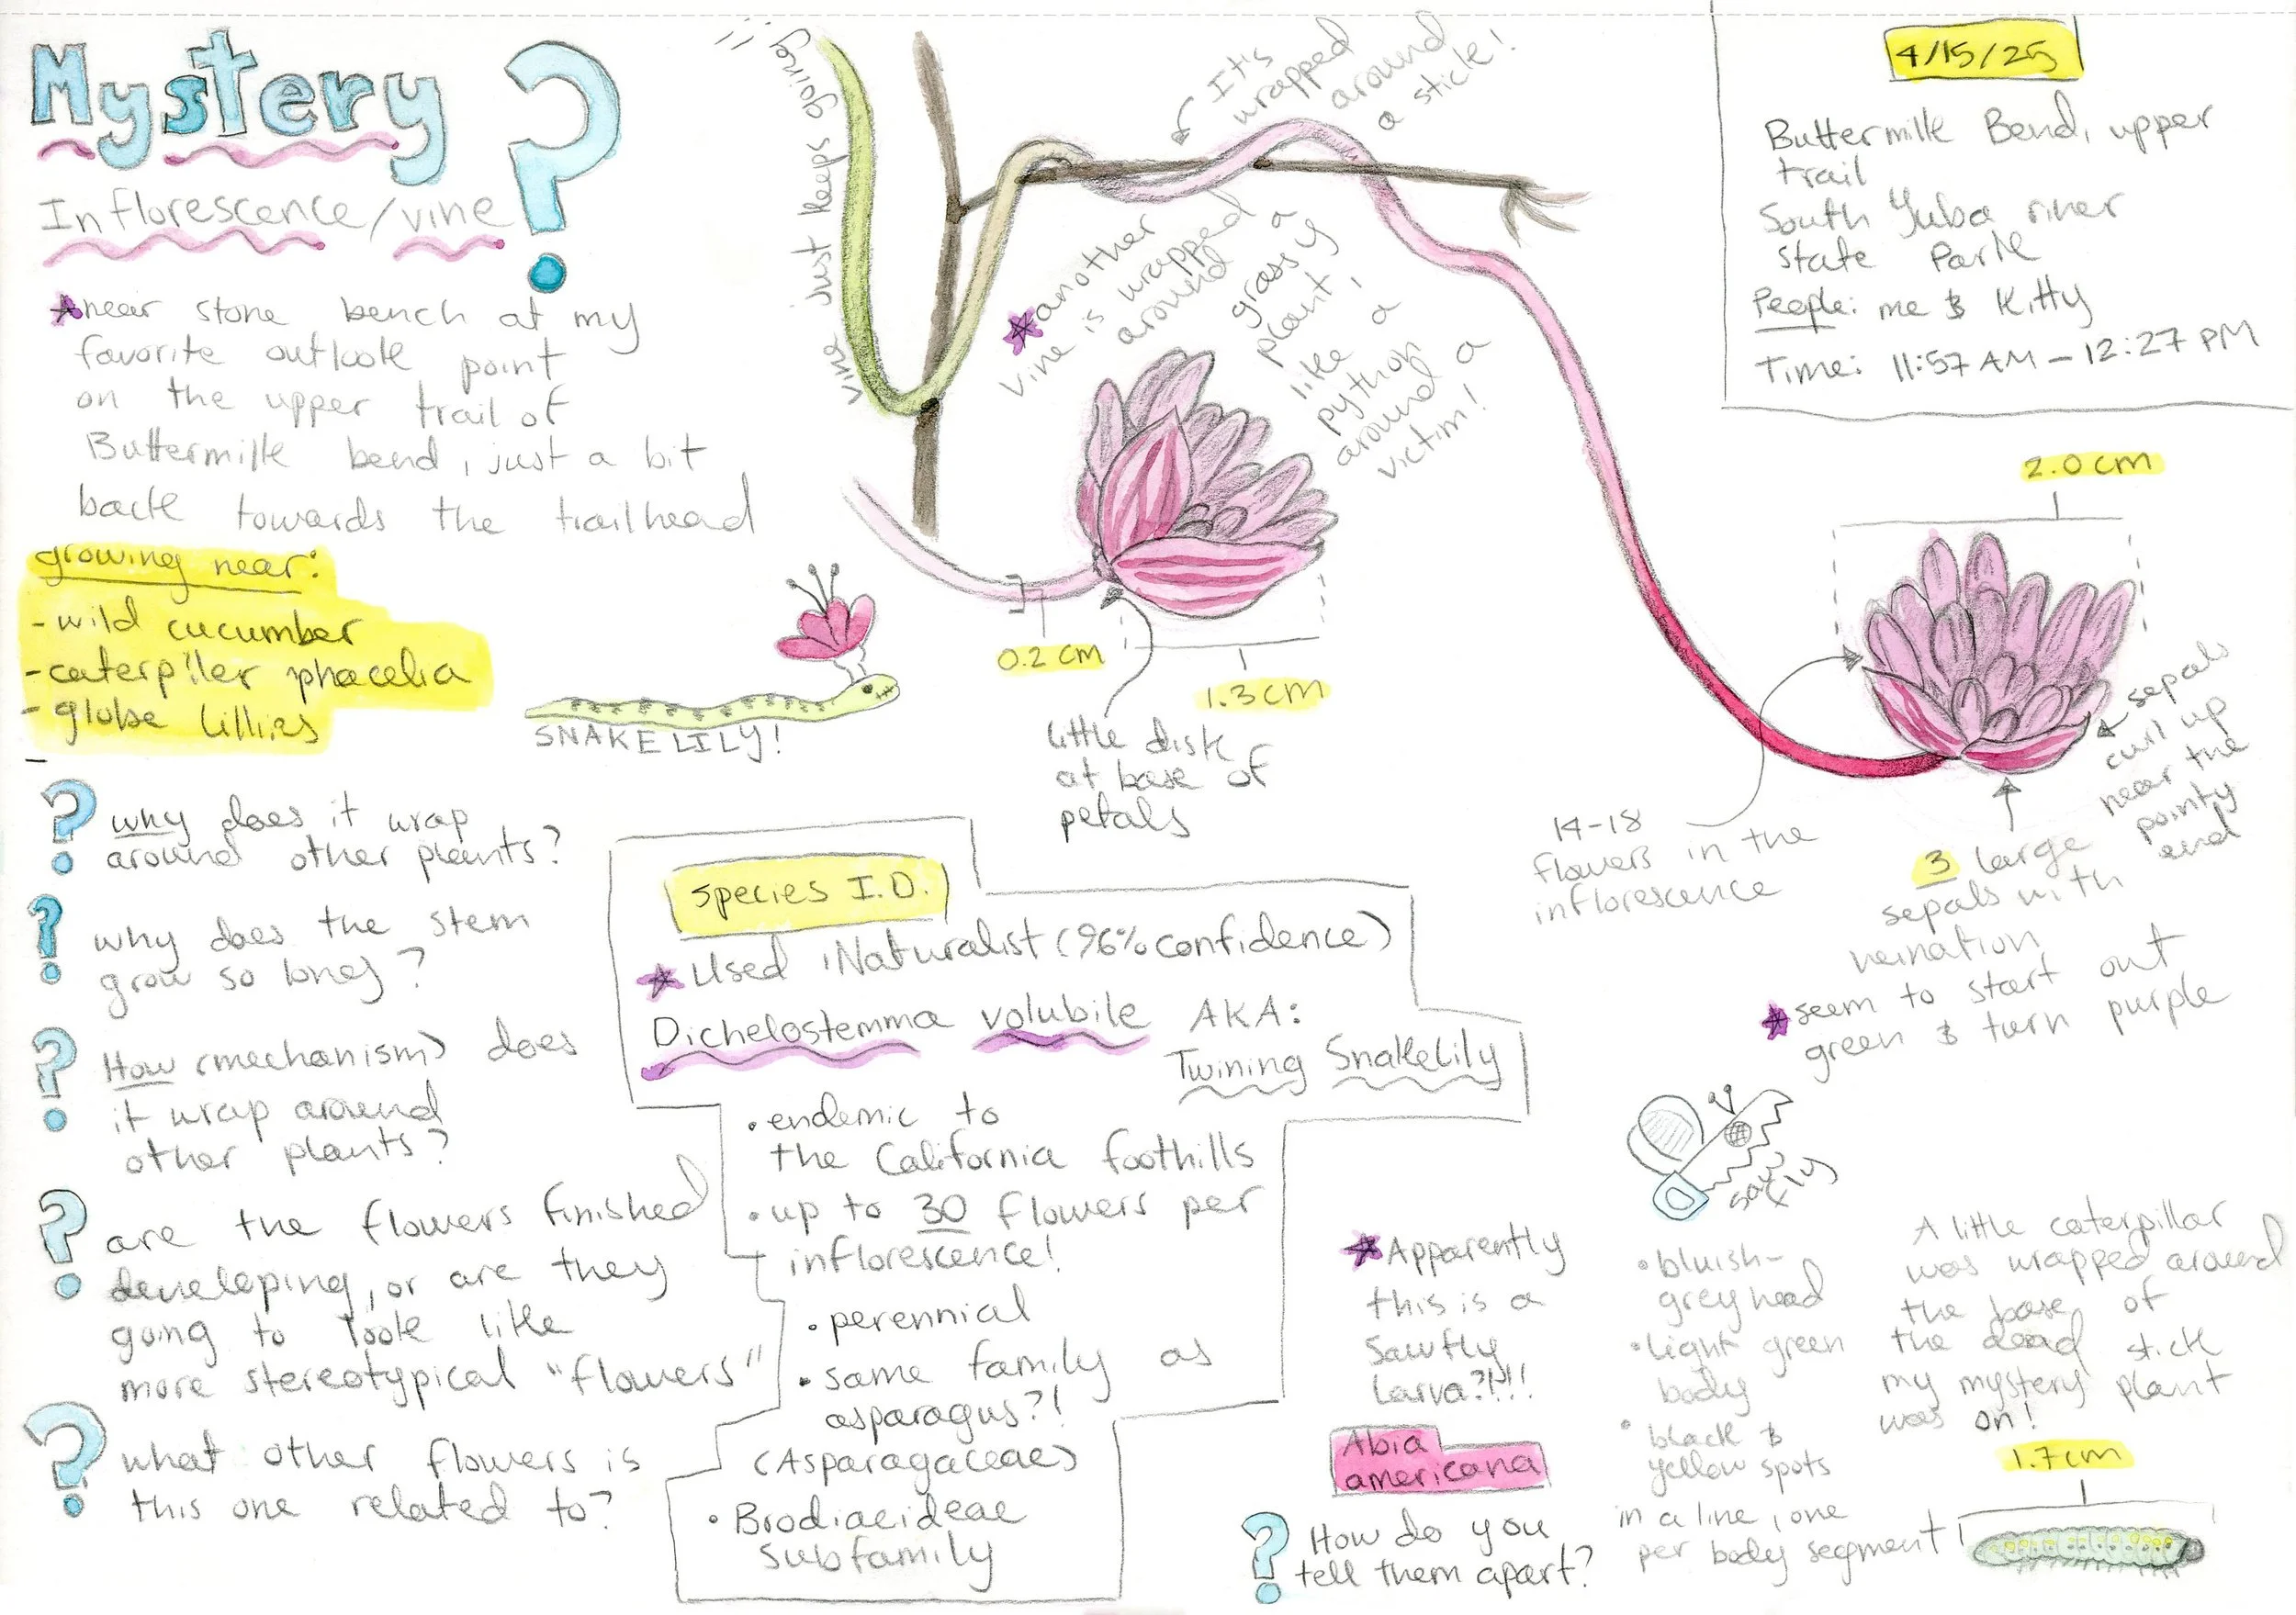 Mystery ?
Inflorescence/vine
near stone bench at my
favorite outlook point
on the upper trail of
Buttermilk bend, just a bit
back towards the trailhead
growing near:
- wild cucumber
- caterpiller phacelia
- globe lillies
SNAKE LILY!
? why does it wrap
around other plants?
? why does the stem
grow so long?
? How (mechanism) does
it wrap around
other plants?
? are the flowers finished
developing, or are they
going to look like
more stereotypical "flowers"
? what other flowers is
this one related to?
vine just keeps going!!
It's
wrapped
around
a stick!
another
vine is wrapped
around a
grassy
plant,
like a
python
around a
victim!
0.2 cm
1.3 cm
little disk
at base of
petals
4/15/25
Buttermilk Bend, upper
trail
South Yuba river
State Park
People: me & Kitty
Time: 11:57 AM - 12:27 PM
2.0 cm
sepals
curl up
near the
pointy
end
14-18
flowers in the
inflorescence
3 large
sepals with
veination
seem to start out
green & turn purple
Species I.D.
Used iNaturalist (96% confidence)
Dichelostemma volubile AKA:
Twining Snakelily
• endemic to
the California foothills
• up to 30 flowers per
inflorescence!
• perennial
• same family as
asparagus?!
(Asparagaceae)
• Brodiaeideae
subfamily
saw
fly
Apparently
this is a
Sawfly
Larva?!?!!
Abia
americana
? How do you
tell them apart?
• bluish-
grey head
• light green
body
• black &
yellow spots
in a line, one
per body segment
A little caterpillar
was wrapped around
the base of
the dead stick
my mystery plant
was on!
1.7cm